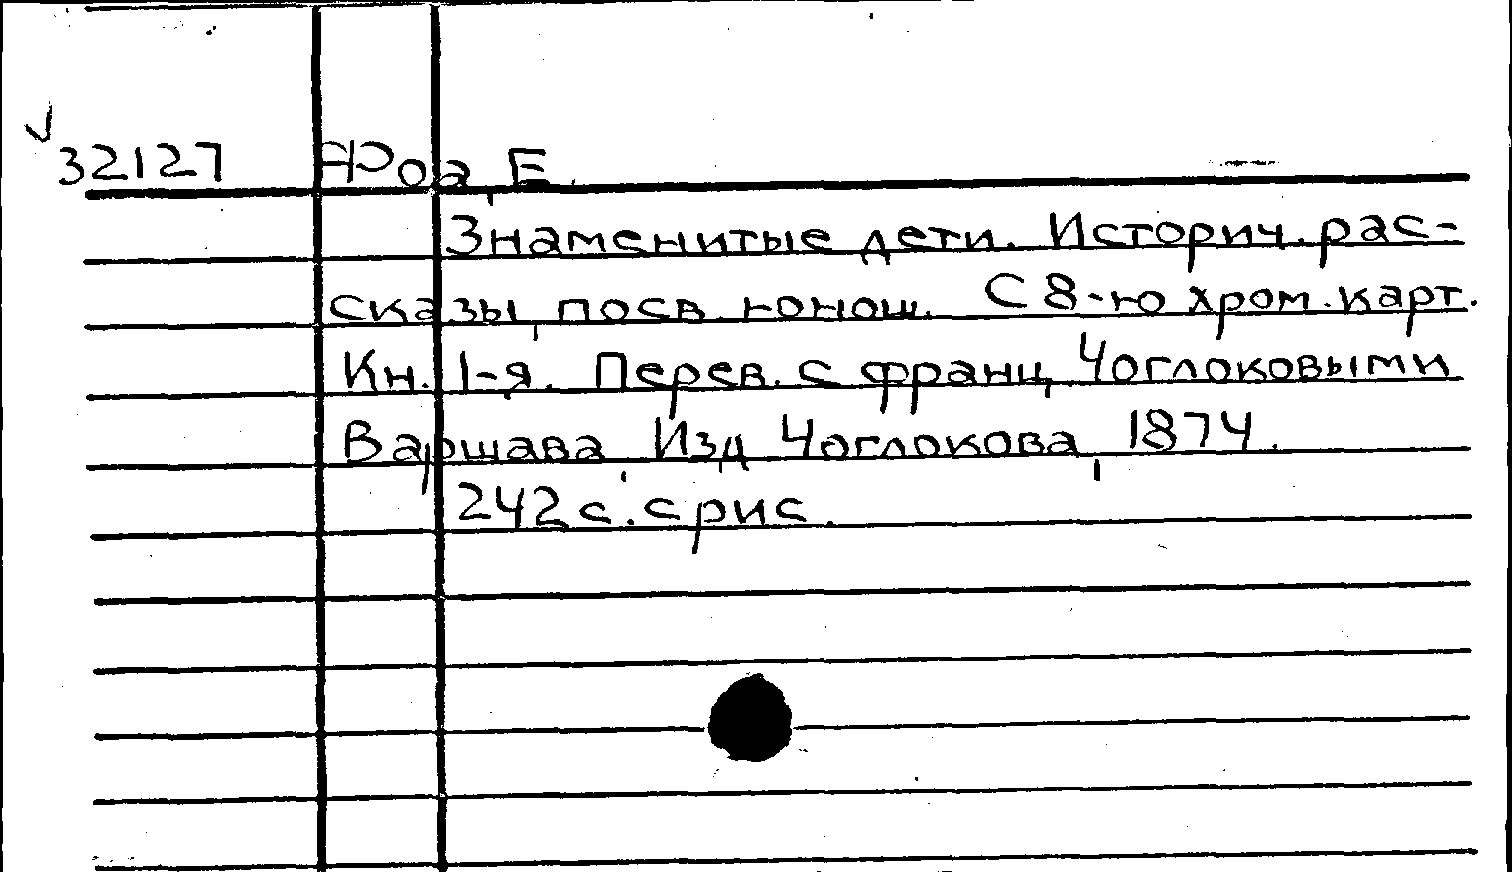 32127 Фоа, Е.
Знаменитые дети. Историч. рас-
сказы, посв. юнош. С 8-ю хром. карт.
Кн. 1-я. Перев. с франц. Чоглоковыми
Варшава, Изд. Чоглокова, 1874.
242 с. с рис.